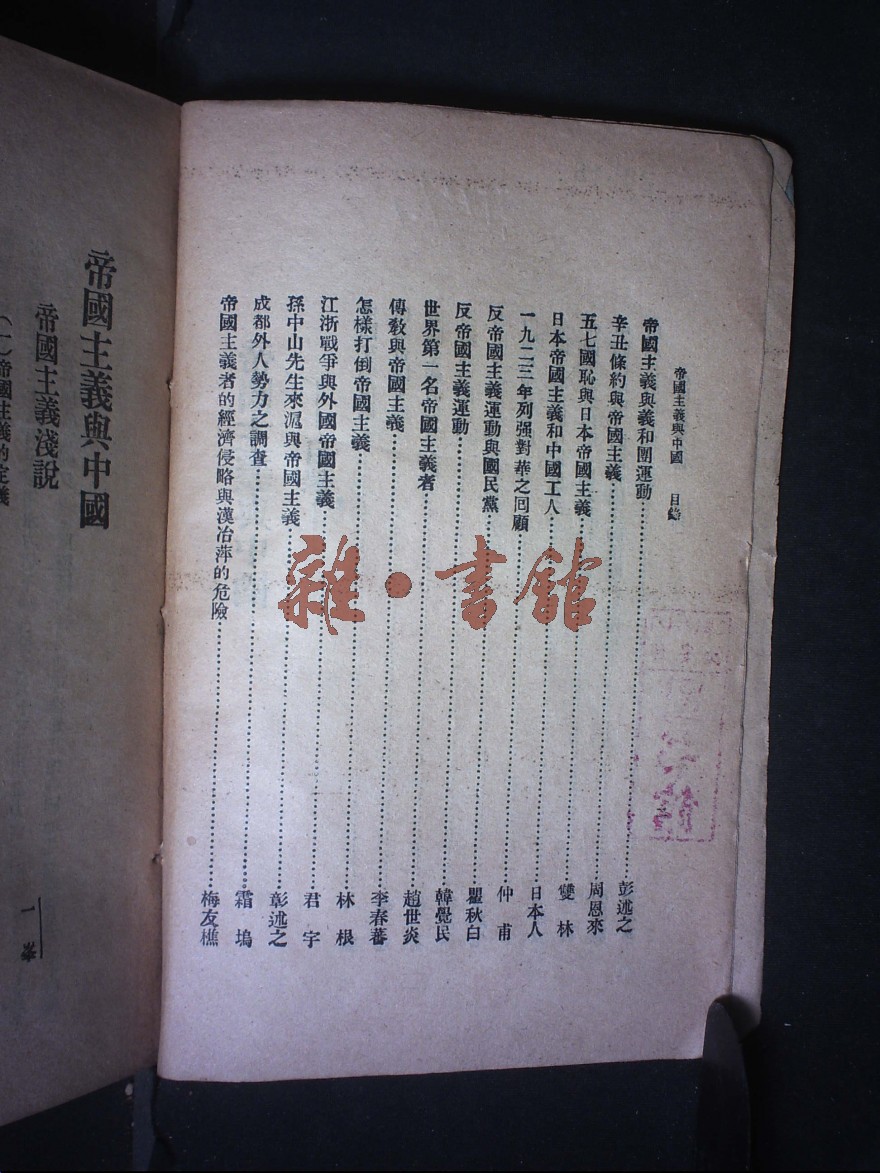 帝國主義與中國　目錄
帝國主義與義和團運動……彭述之
辛丑條約與帝國主義……周恩來
五七國恥與日本帝國主義……雙　林
日本帝國主義和中國工人……日本人
一九二三年列强對華之回顧……仲　甫
反帝國主義運動與國民黨……瞿秋白
反帝國主義運動……韓覺民
世界第一名帝國主義者……趙世炎
傳教與帝國主義……李春蕃
怎樣打倒帝國主義……林　根
江浙戰爭與外國帝國主義……君　宇
孫中山先生來滬與帝國主義……彭述之
成都外人勢力之調查……霜　塢
帝國主義者的經濟侵略與漢冶萍的危險……梅友樵
雜·書館
帝國主義與中國
帝國主義淺說
（一）帝國主義的定義
一